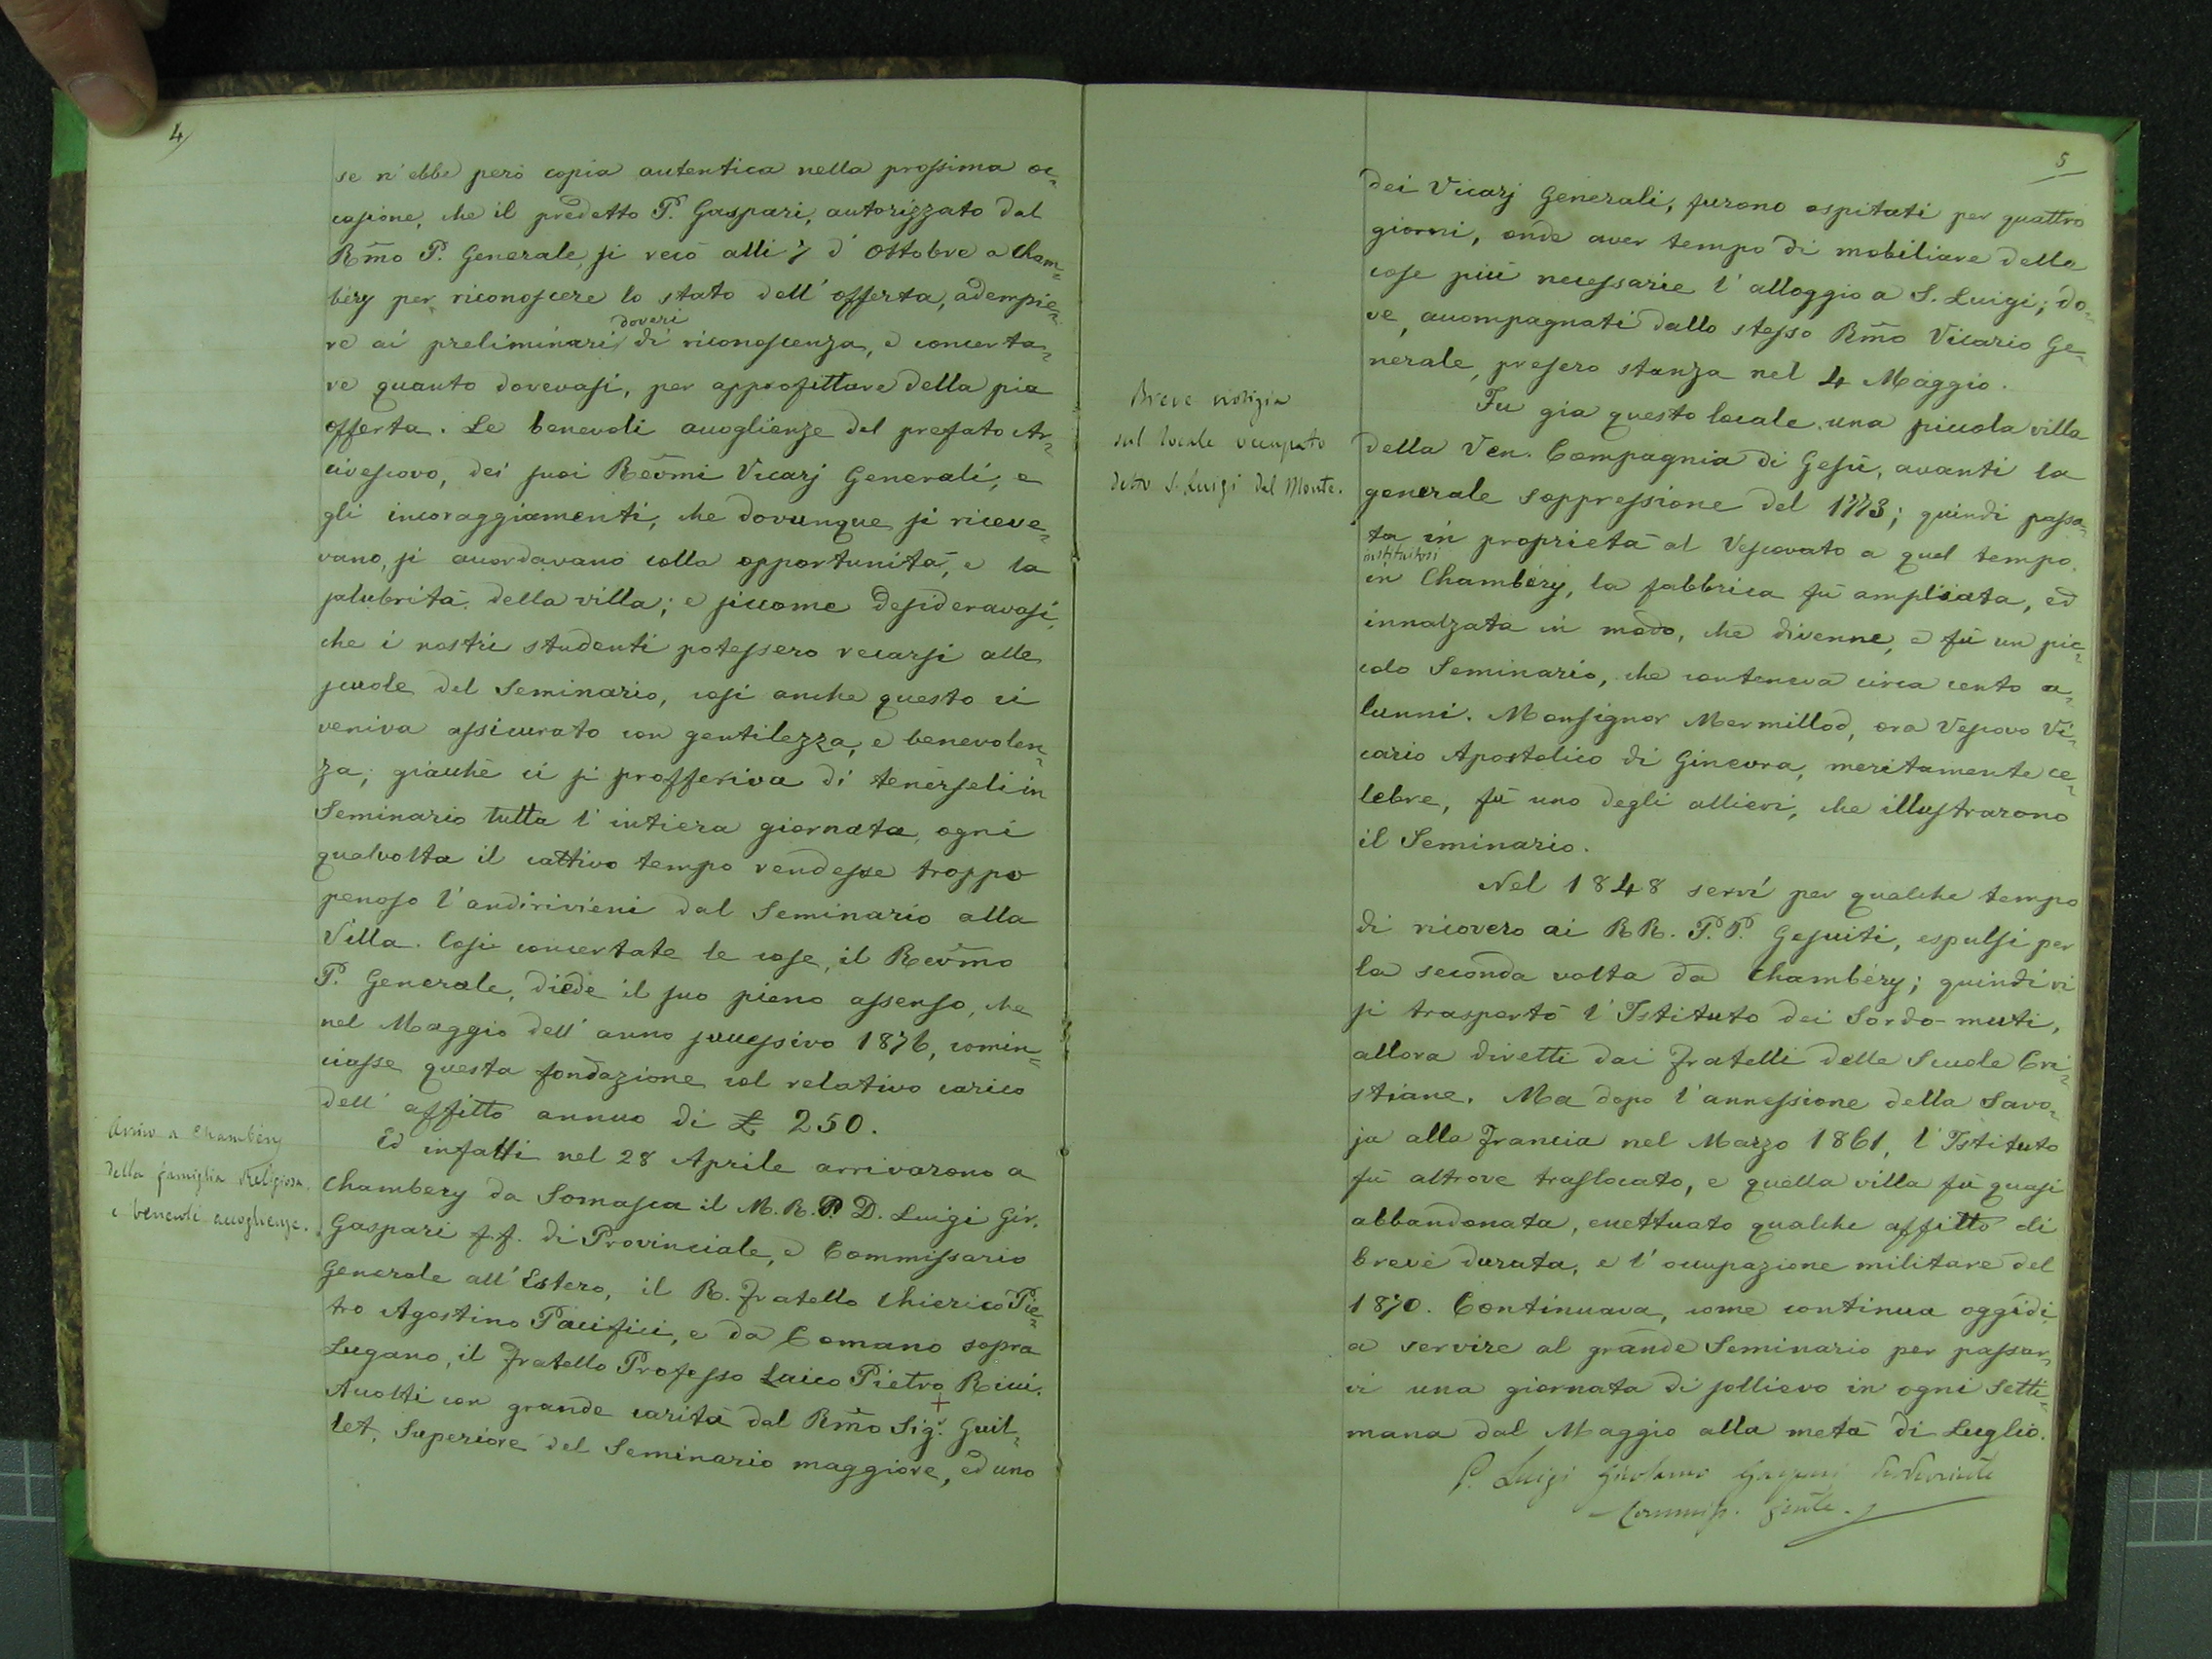 4
se n'ebbe però copia autentica nella prossima oc-
casione, che il predetto P. Gaspari, autorizzato dal
Rm̃o P. Generale, si recò alli 7 d'Ottobre a Cham-
béry per riconoscere lo stato dell'offerta, adempie-
doveri
re ai preliminari di riconoscenza, e concerta-
re quanto dovevasi, per approfittare della pia
offerta. Le benevoli accoglienze del prefato Ar-
civescovo, dei suoi Reṽmi Vicarj Generali, e
gli incoraggiamenti, che dovunque si riceve-
vano, si accordavano colla opportunità, e la
salubrità della villa; e siccome desideravasi,
che i nostri studenti potessero recarsi alle
scuole del Seminario, così anche questo ci
veniva assicurato con gentilezza, e benevolen-
za, giacchè ci si profferiva di tenerseli in
Seminario tutta l'intiera giornata, ogni
qualvolta il cattivo tempo rendesse troppo
penoso l'andirivieni dal Seminario alla
Villa. Così concertate le cose, il Reṽmo
P. Generale, diede il suo pieno assenso, che
nel Maggio dell'anno successivo 1876, comin-
ciasse questa fondazione col relativo carico
dell'affitto annuo di £ 250.
Arrivo a Chambéry
della famiglia Religiosa
e benevoli accoglienze.
Ed infatti nel 28 Aprile arrivarono a
Chambery da Somasca il M. R. P. D. Luigi Gir.
Gaspari f.f. di Provinciale, e Commissario
Generale all'Estero, il R. Fratello Chierico Pie-
tro Agostino Pacifici, e da Comano sopra
Lugano, il Fratello Professo Laico Pietro Ricci.
Accolti con grande carità dal Rm̃o Sigr. + Guil-
let, Superiore del Seminario maggiore, ed uno
5
dei Vicarj Generali, furono ospitati per quattro
giorni, onde aver tempo di mobiliare delle
cose più necessarie l'alloggio a S. Luigi; do-
ve, accompagnati dallo stesso Rm̃o Vicario Ge-
nerale, presero stanza nel 4 Maggio.
Breve notizia
sul locale occupato
detto S. Luigi del Monte.
Fu già questo locale una piccola villa
della Ven. Compagnia di Gesù, avanti la
generale soppressione del 1773; quindi passa-
ta in proprietà al Vescovato a quel tempo
instituitosi
in Chambéry, la fabbrica fù ampliata, ed
innalzata in modo, che divenne, e fù un pic-
colo Seminario, che conteneva circa cento a-
lunni. Monsignor Mermillod, ora Vescovo Vi-
cario Apostolico di Ginevra, meritamente ce-
lebre, fù uno degli allievi, che illustrarono
il Seminario.
Nel 1848 servì per qualche tempo
di ricovero ai RR. P.P. Gesuiti, espulsi per
la seconda volta da Chambéry; quindi vi
si trasportò l'Istituto dei Sordo-muti,
allora diretti dai Fratelli delle Scuole Cri-
stiane. Ma dopo l'annessione della Savo-
ja alla Francia nel Marzo 1861, l'Istituto
fù altrove traslocato, e quella villa fù quasi
abbandonata, eccettuato qualche affitto di
breve durata, e l'occupazione militare del
1870. Continuava, come continua oggidì
a servire al grande Seminario per passar-
vi una giornata di sollievo in ogni Setti-
mana dal Maggio alla metà di Luglio.
P. Luigi Girolamo Gaspari
Commiss. Genle.